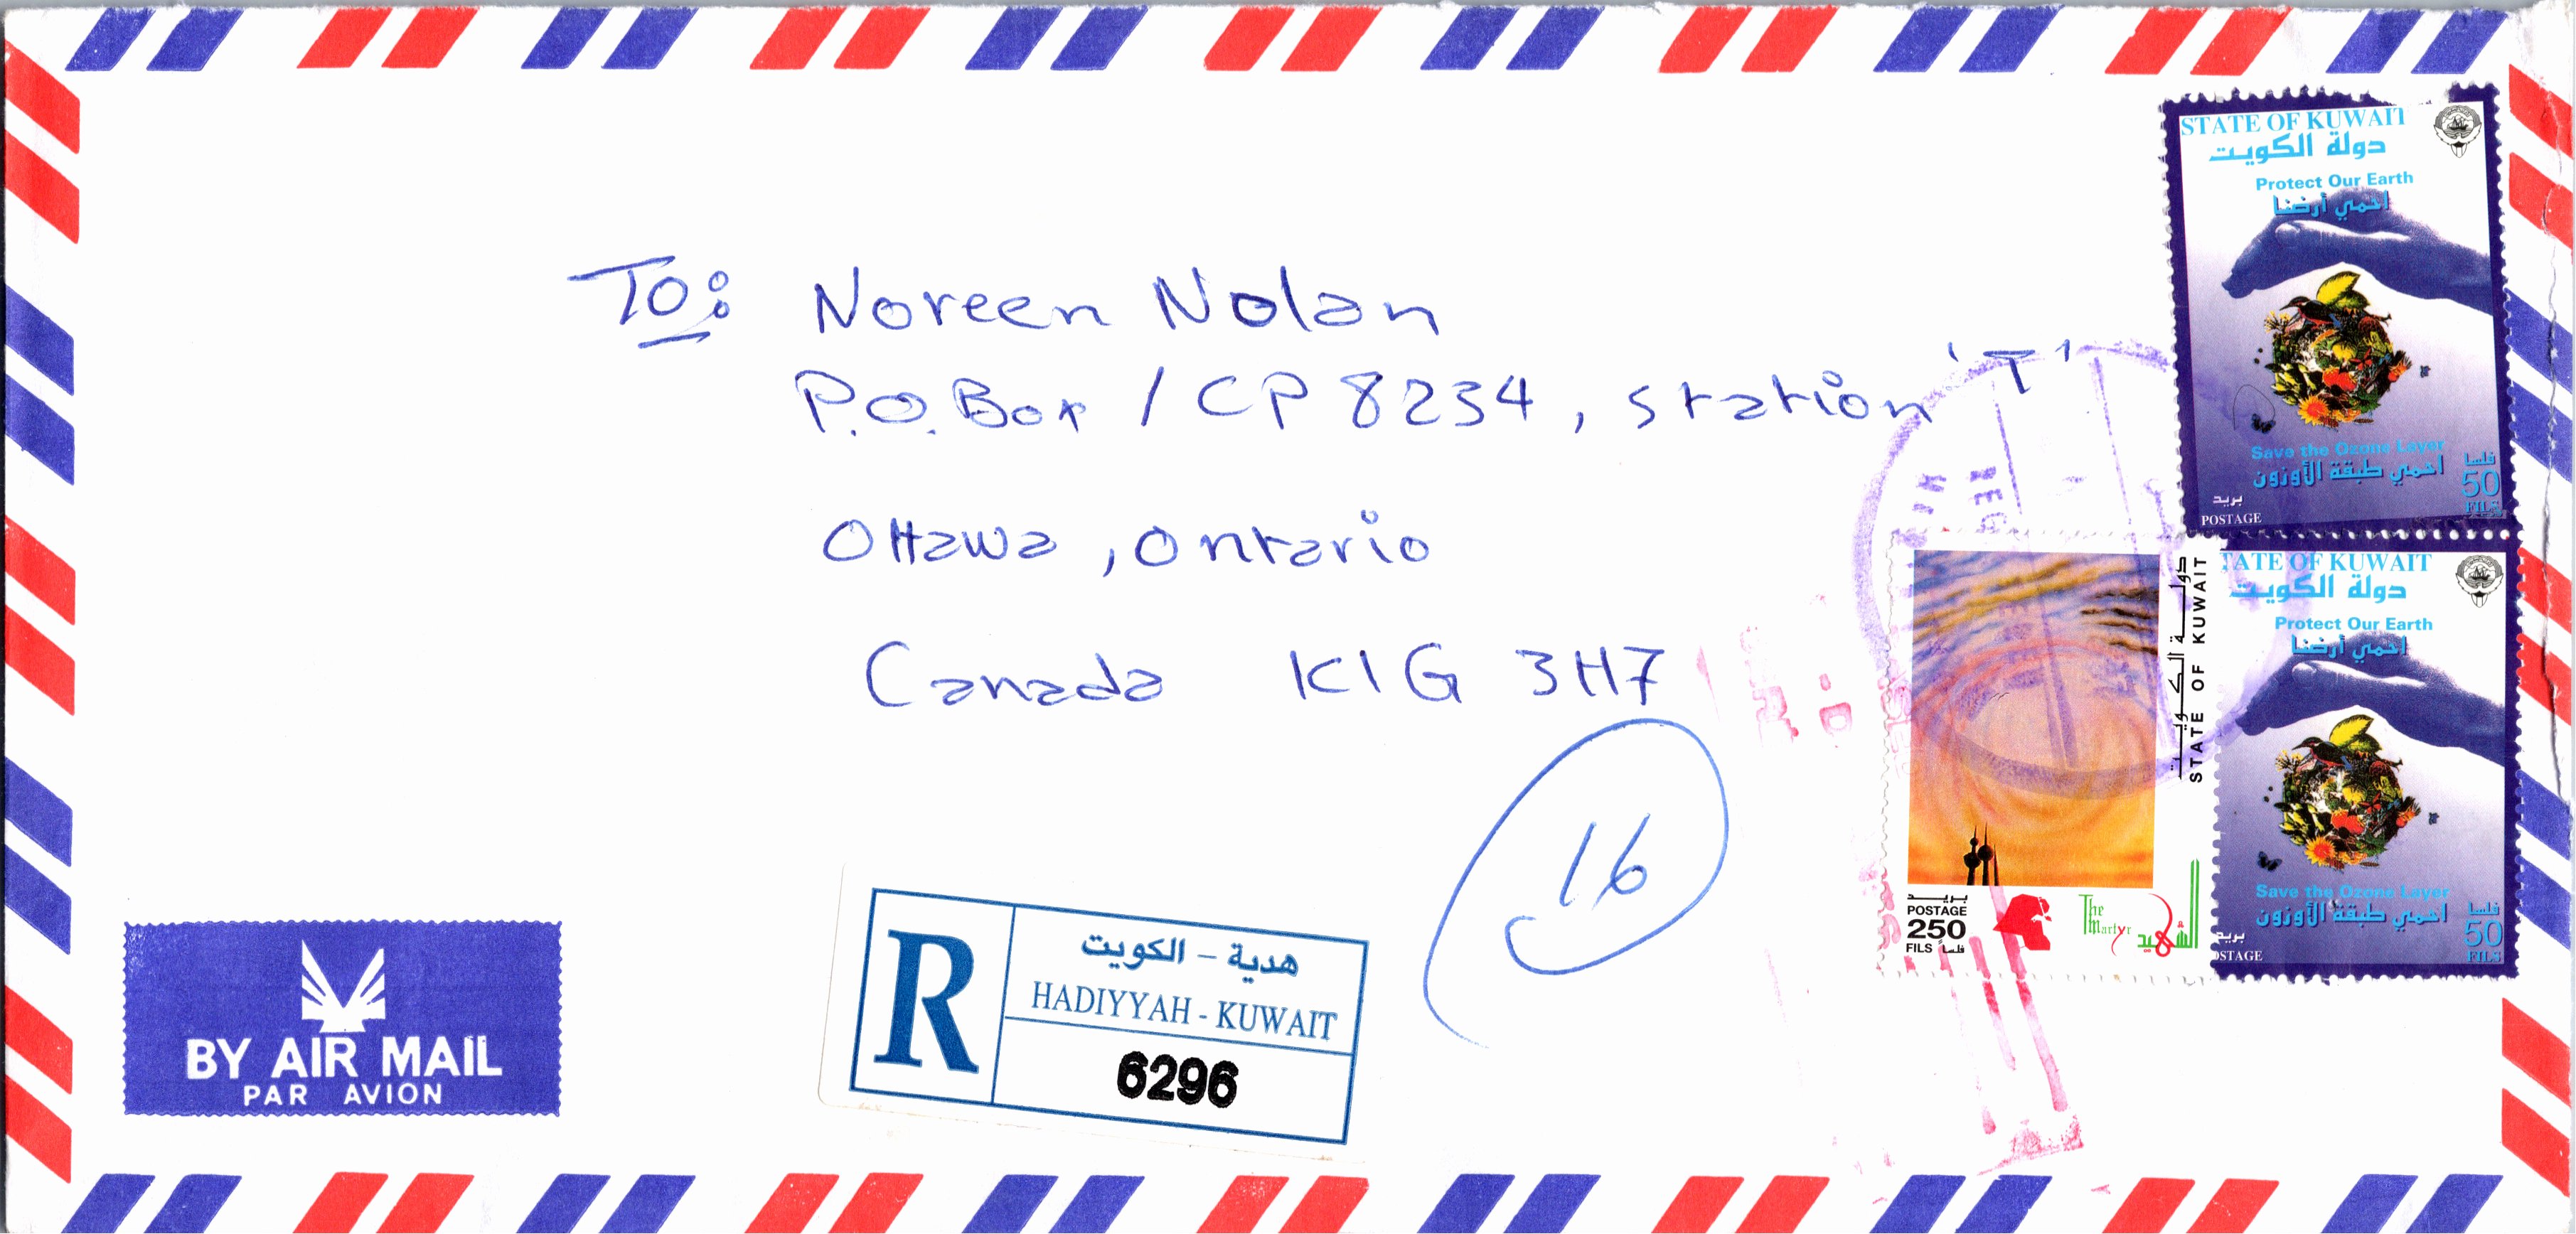 To: Noreen Nolan
P.O. Box / CP 8234, Station 'T'
Ottawa, Ontario
Canada K1G 3H7
16
STATE OF KUWAIT
دولة الكويت
Protect Our Earth
احمي أرضنا
Save the Ozone Layer
احمي طبقة الأوزون
فلسا
50
FILS
بريد
POSTAGE
دولة الكويت
STATE OF KUWAIT
بريد
POSTAGE
250
FILS فلساً
The Martyr
الشهيد
TATE OF KUWAIT
دولة الكويت
Protect Our Earth
احمي أرضنا
Save the Ozone Layer
احمي طبقة الأوزون
فلسا
50
FILS
بريد
OSTAGE
REG
BY AIR MAIL
PAR AVION
R
هدية - الكويت
HADIYYAH - KUWAIT
6296